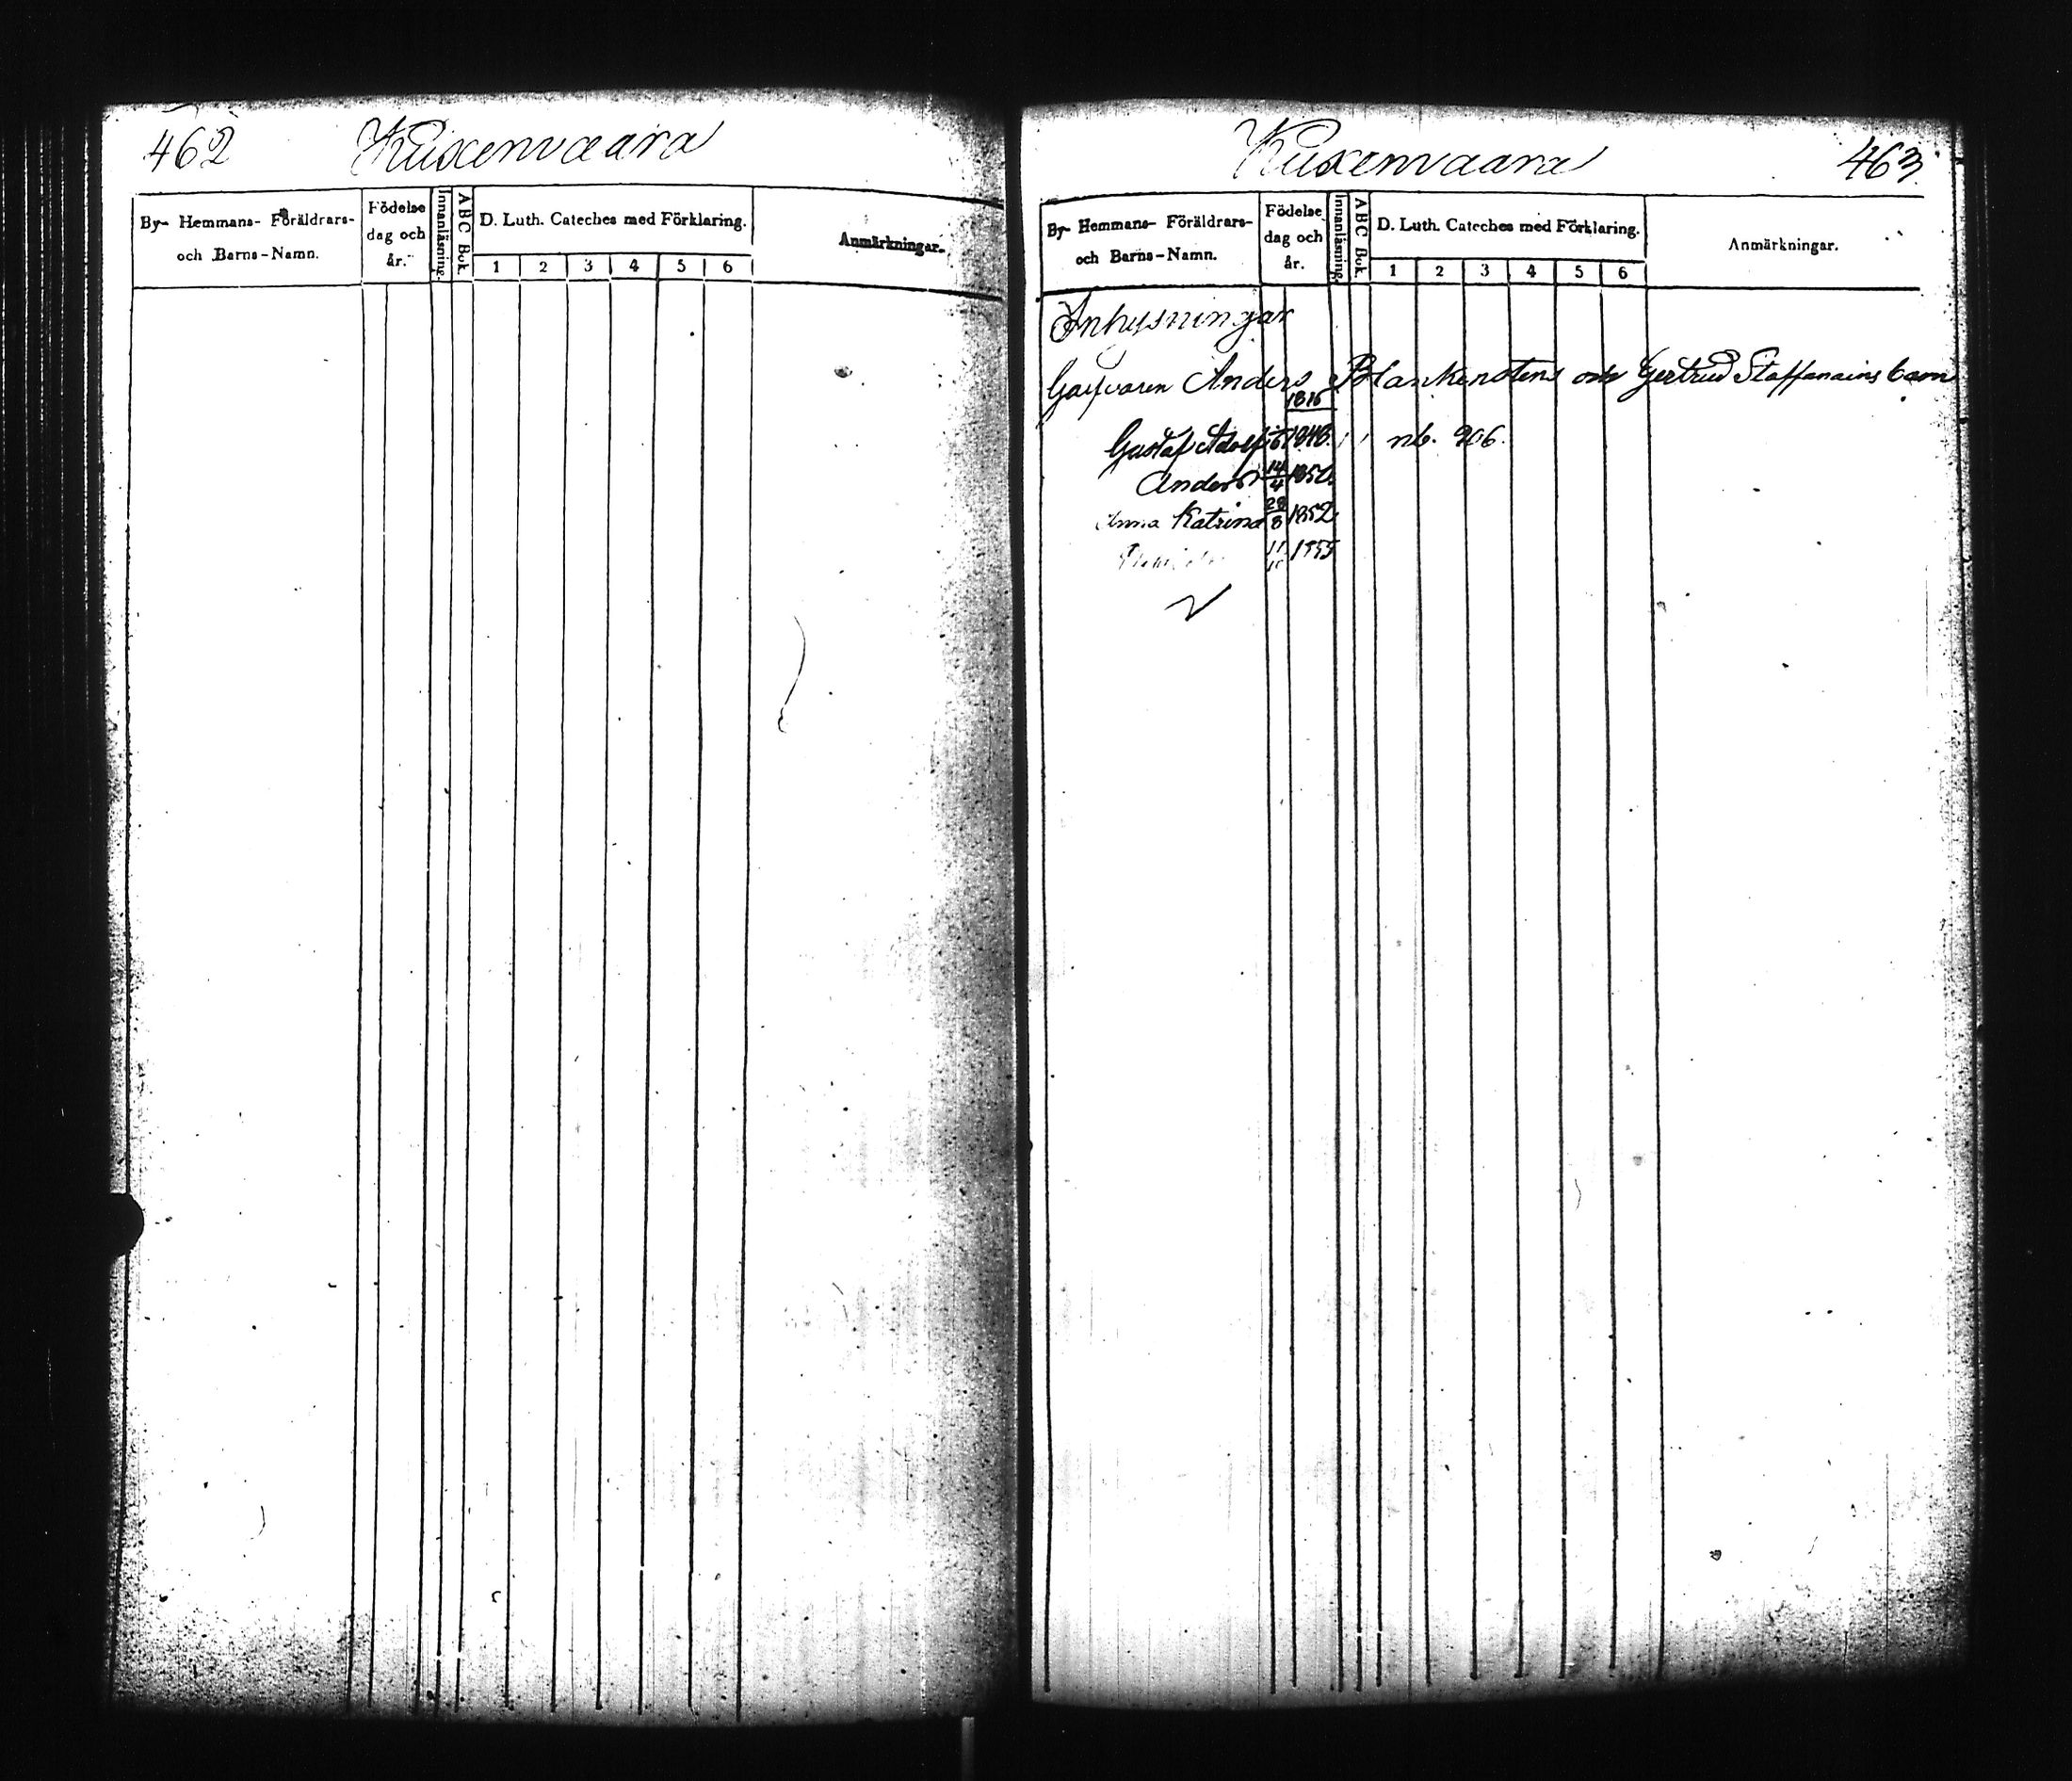 462 Kuxenvaara
By- Hemmans- Föräldrars- och Barns-Namn.
Födelse dag och år.
Innanläsning.
A B C Bok.
D. Luth. Cateches med Förklaring.
1 2 3 4 5 6
Anmärkningar.
Kuxenvaara 463
By- Hemmans- Föräldrars- och Barns-Namn.
Födelse dag och år.
Innanläsning.
A B C Bok.
D. Luth. Cateches med Förklaring.
1 2 3 4 5 6
Anmärkningar.
Inhysningar
Anders Blankenstens och Gertrud Staffanains barn
Gustaf Adolf nb. 906.
Anders 14/4 1850.
Anna Katrina 28/8 1852